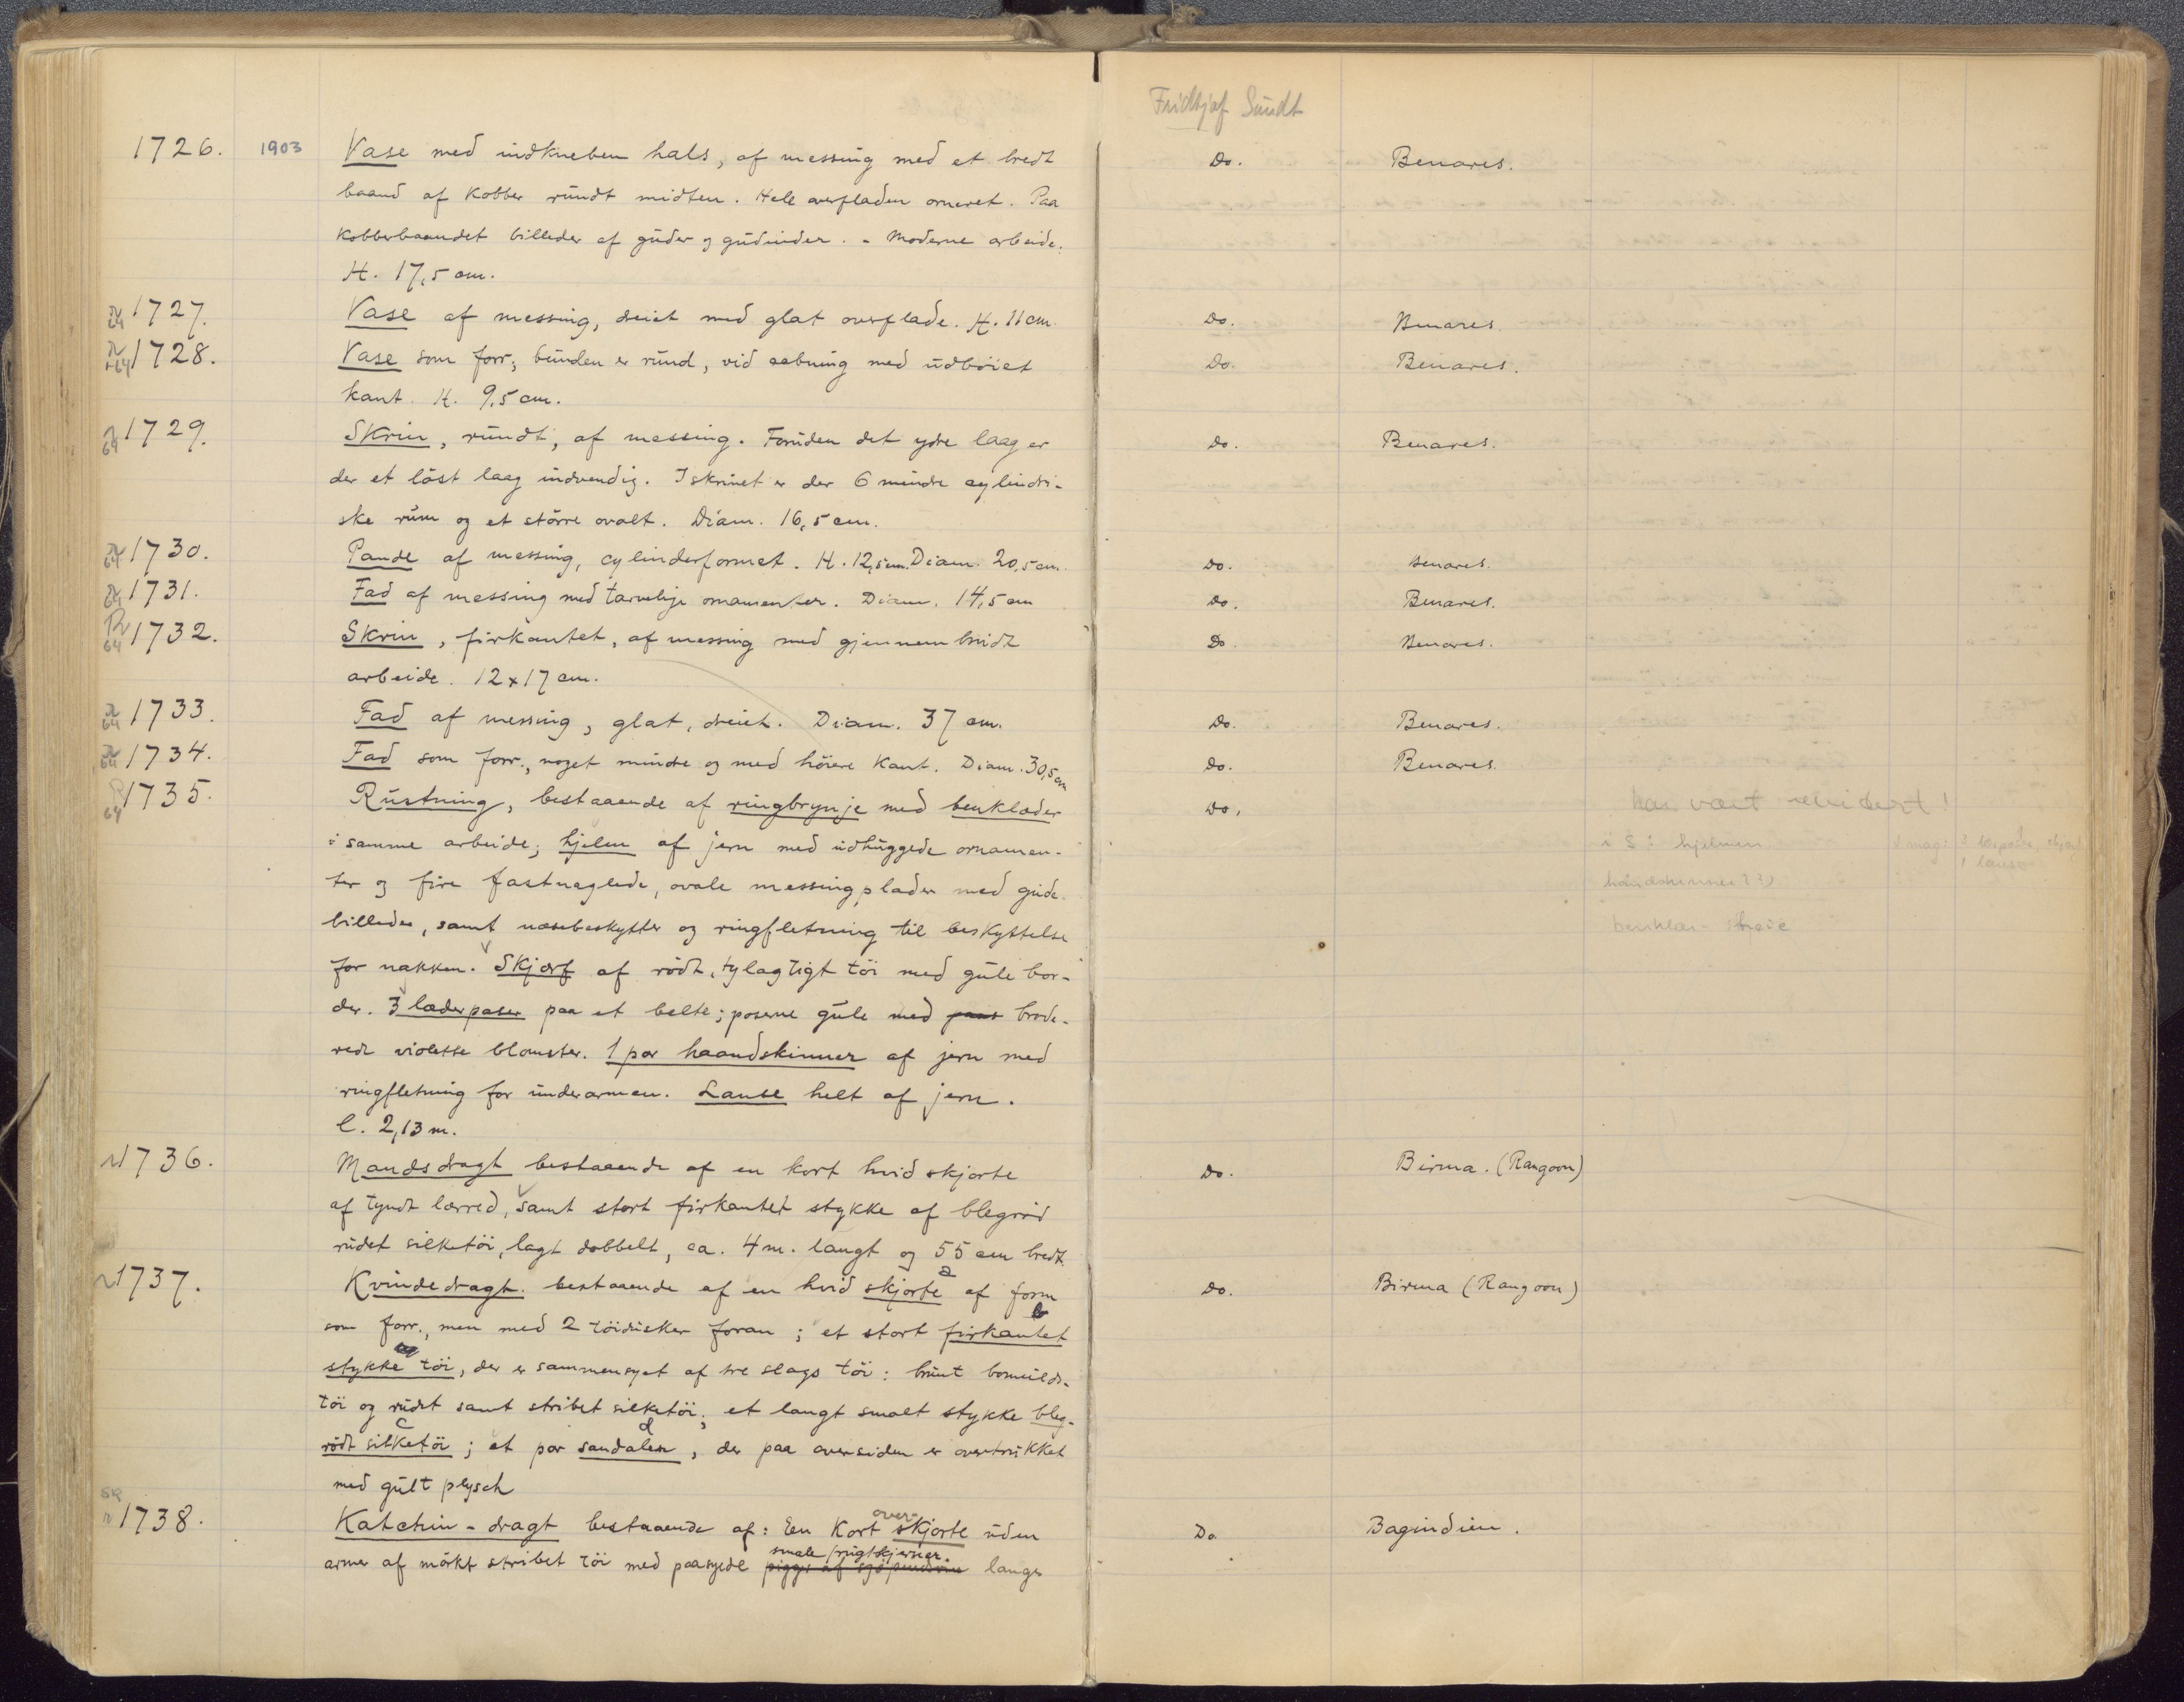 Fridthjof Sundt
1726. 1903 Vase med indkneben hals, af messing med et bredt Do. Benares.
baand af kobber rundt midten. Hele overfladen orneret. Paa
kobberbaandet billeder af guder og gudinder. - Moderne arbeide.
H. 17,5 cm.
1727. Vase af messing, dreiet med glat overflade. H. 11 cm. Do. Benares.
1728. Vase som forr., bunden er rund, vid aabning med udböiet Do. Benares.
kant. H. 9,5 cm.
1729. Skrin, rundt, af messing. Foruden det ydre laag er Do. Benares.
der et löst laag indvendig. I skrinet er der 6 mindre cylindri-
ske rum og et större ovalt. Diam. 16,5 cm.
1730. Pande af messing, cylinderformet. H. 12,5 cm. Diam. 20,5 cm. Do. Benares.
1731. Fad af messing med tarvelige ornamenter. Diam. 14,5 cm Do. Benares.
1732. Skrin, firkantet, af messing med gjennembrudt Do. Benares.
arbeide. 12 x 17 cm.
1733. Fad af messing, glat, dreiet. Diam. 37 cm. Do. Benares.
1734. Fad som forr., noget mindre og med höiere kant. Diam. 30,5 cm Do. Benares.
1735. Rustning, bestaaende af ringbrynje med benklæder Do. har vært revidert!
i samme arbeide; hjelm af jern med udhuggede ornamen- i S: hjelmen
ter og fire fastnaglede, ovale messingplader med gude-
billeder, samt næsebeskytter og ringfletning til beskyttelse
for nakken. Skjærf af rödt, tylagtigt töi med gule bor-
der. 3 læderposer paa et belte; poserne gule med brode-
rede violette blomster. 1 par haandskinner af jern med
ringfletning for underarmen. Lanse helt af jern.
l. 2,13 m.
1736. Mandsdragt bestaaende af en kort hvid skjorte Do. Birma. (Rangoon)
af tyndt lærred, samt stort firkantet stykke af blegröd
rudet silketöi, lagt dobbelt, ca. 4 m. langt og 55 cm bredt.
1737. Kvindedragt. bestaaende af en hvid skjorte a af form Do. Birma (Rangoon)
som forr., men med 2 töiduske foran; et stort firkantet b
stykke töi, der er sammensyet af tre slags töi: brunt bomulds-
töi og rudet samt stribet silketöi; et langt smalt stykke bleg-
rödt silketöi c; et par sandaler d, der paa oversiden er overtrukket
med gult plysch
1738. Katchin-dragt bestaaende af: En kort over-skjorte uden Do Bagindien.
armer af mörkt stribet töi med paasyede smale frugtskjerner langs